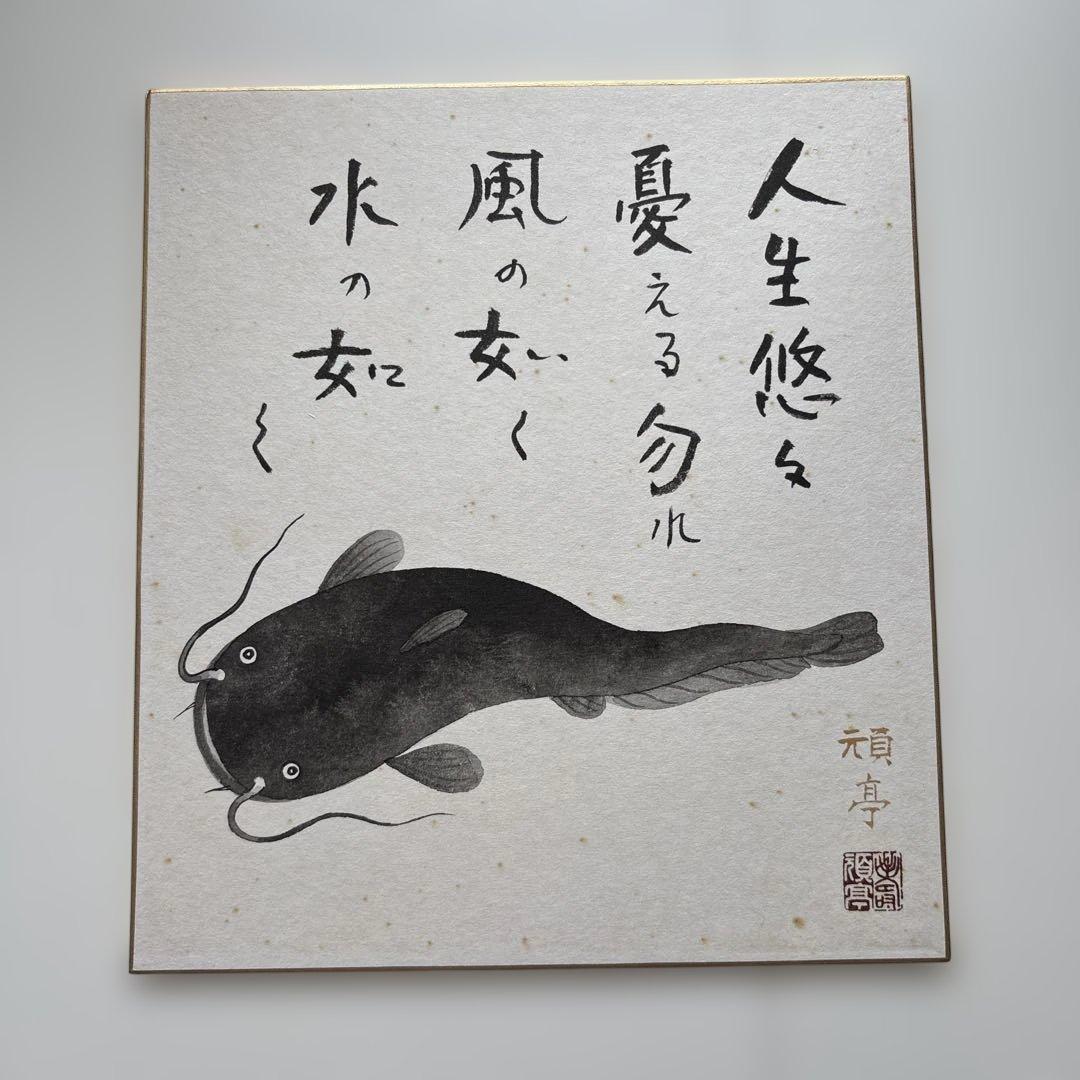 人生悠々
憂える勿れ
風の如く
水の如く
頑亭